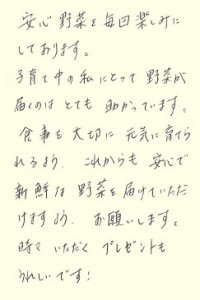 安心野菜を毎回楽しみに
しております。
子育て中の私にとって野菜が
届くのはとても助かっています。
食事を大切に元気に育てら
れるよう、これからも安心で
新鮮な野菜を届けていただ
けますよう、お願いします。
時々いただくプレゼントも
うれしいです!